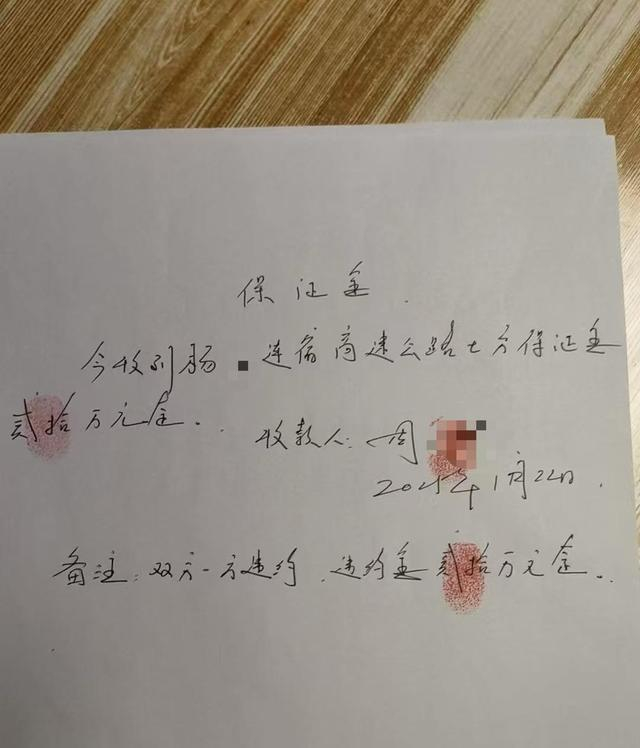 保证金.
今收到杨 连宿高速公路土方保证金
贰拾万元金。
收款人: 周
2025年1月22日.
备注: 双方一方违约,违约金贰拾万元金。